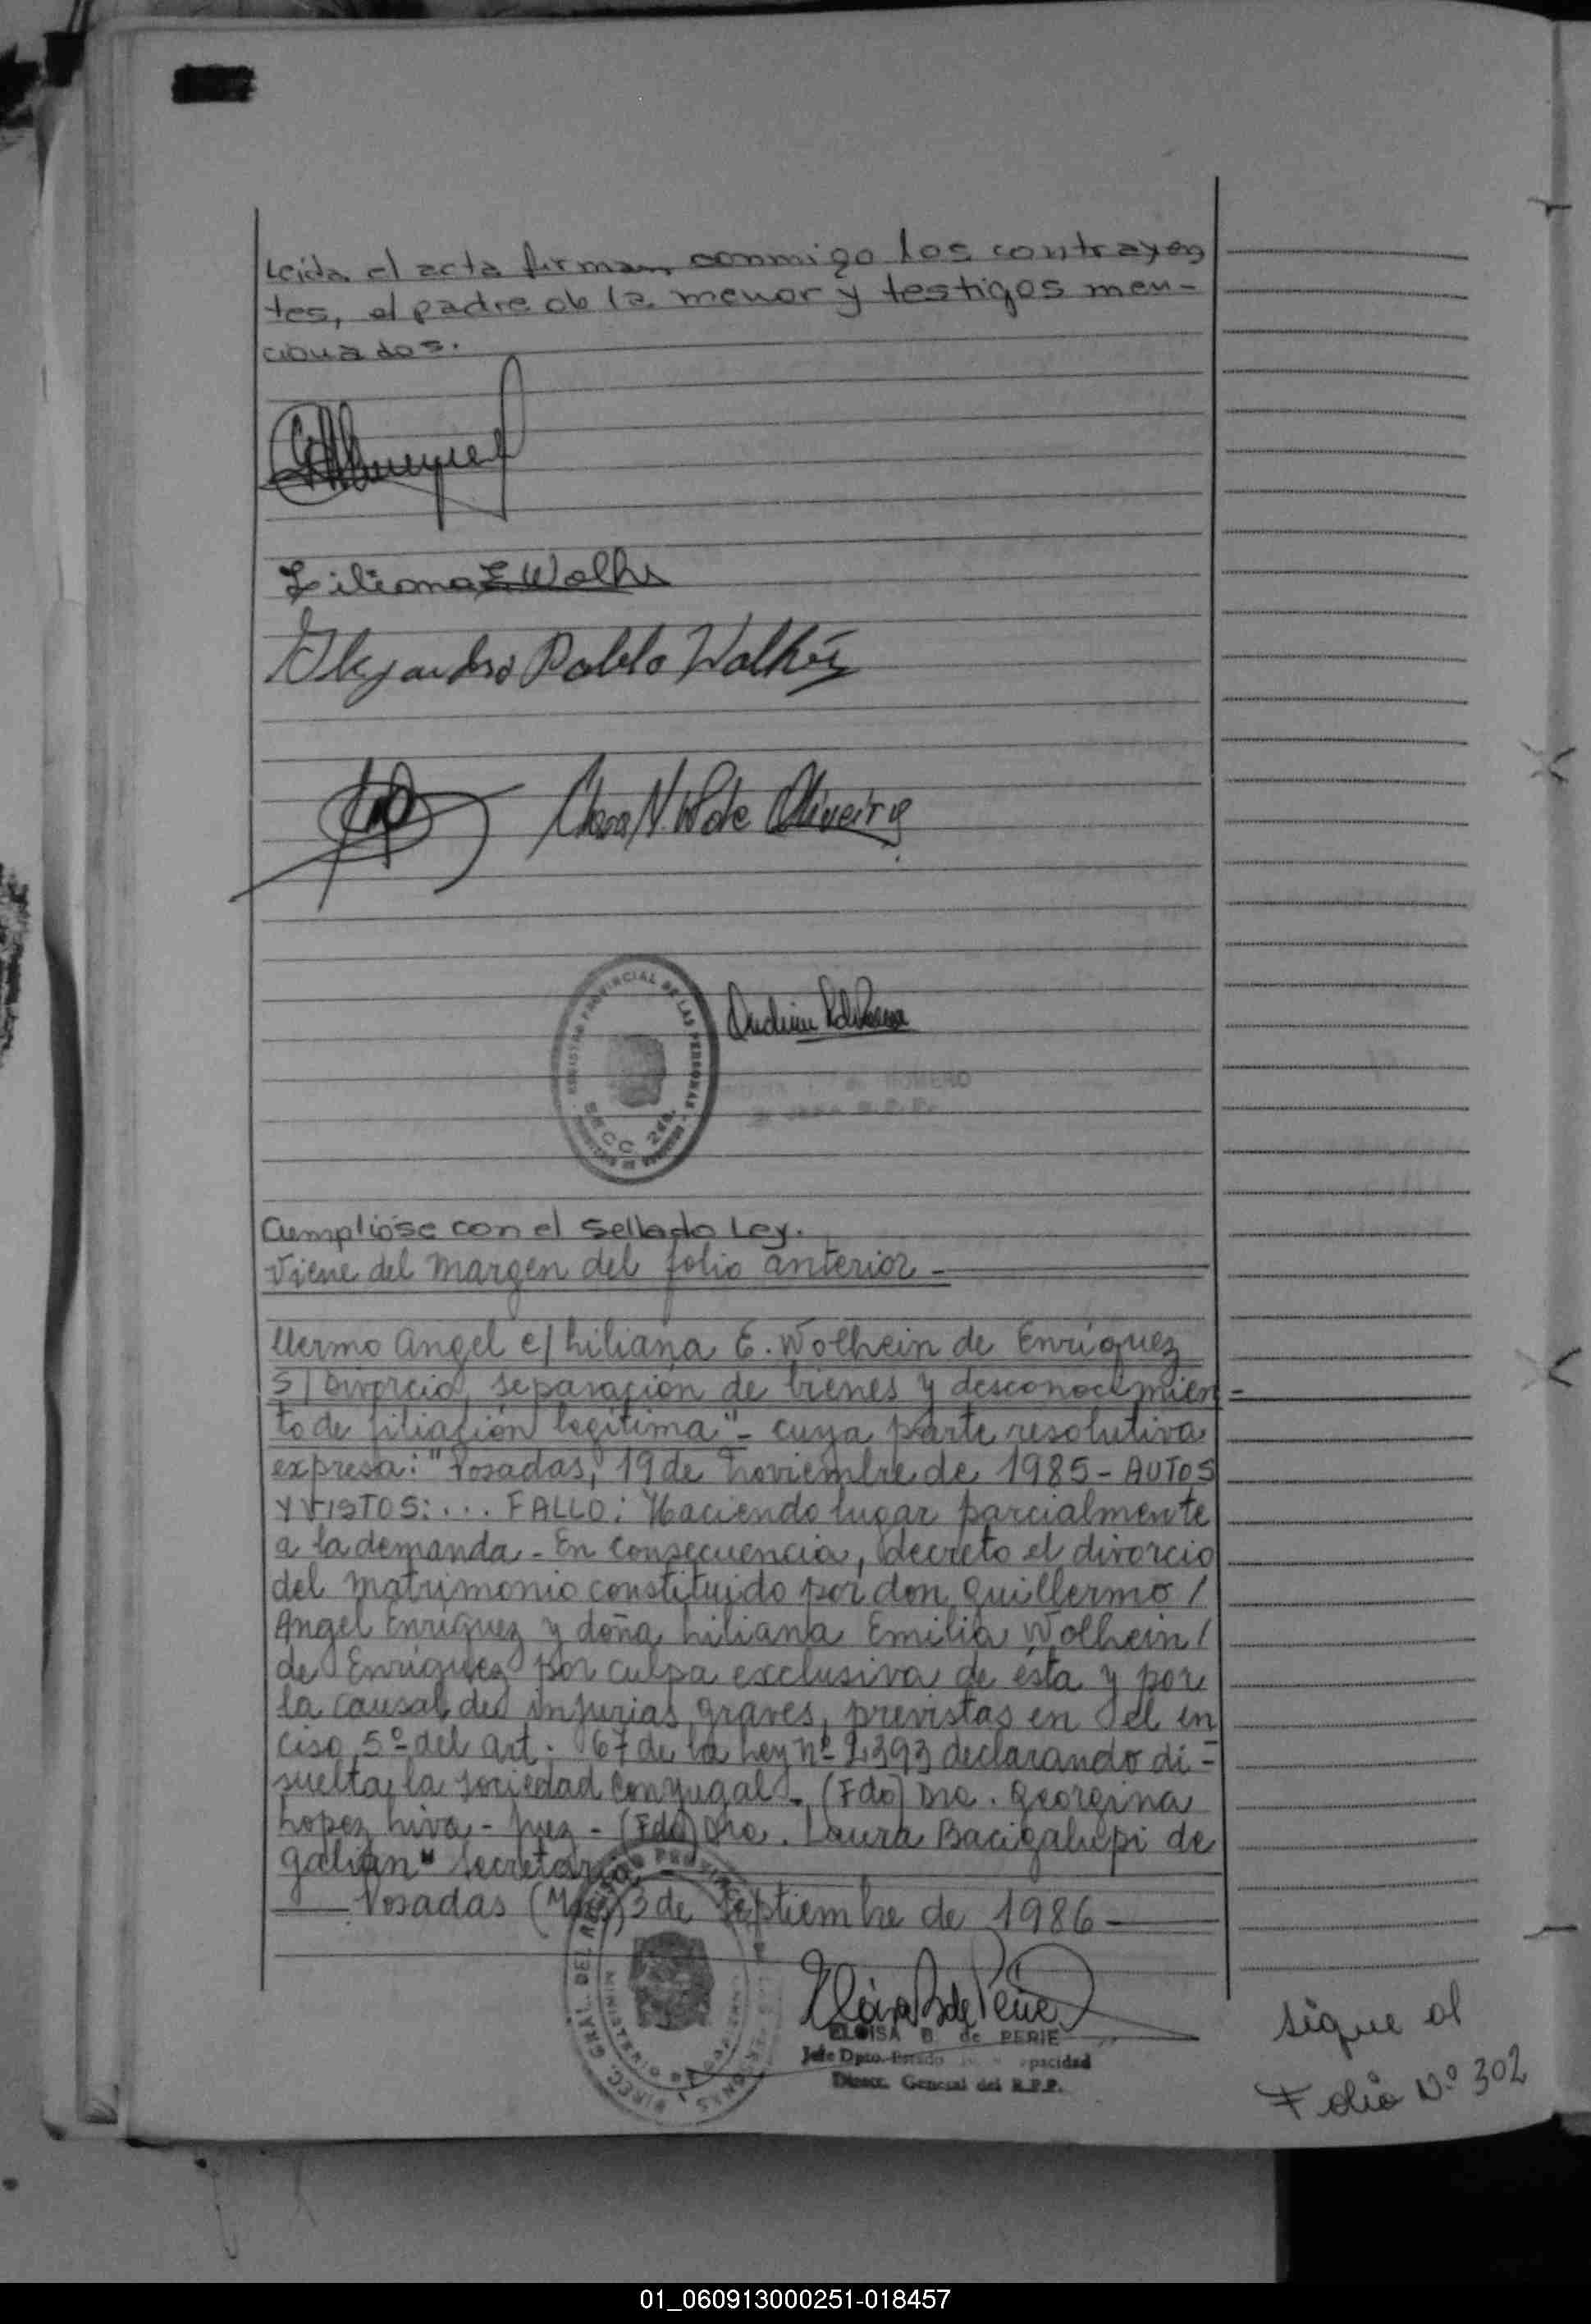 Leida el acta firman conmigo los contrayen
tes, el padre de la menor y testigos men-
cionados.
Liliana E Wolhe
Alejandro Pablo Wolhein
Clara N. W de Oliveira
REGISTRO PROVINCIAL DE LAS PERSONAS
SECC 2da.
ROMERO
Cumplióse con el sellado Ley.
Viene del margen del folio anterior -
llermo Angel c/ Liliana E. Wolhein de Enríquez
S/ Divorcio, separación de bienes y desconocimien-
to de filiación legítima" - cuya parte resolutiva
expresa: "Posadas, 19 de noviembre de 1985 - AUTOS
Y VISTOS: ... FALLO: Haciendo lugar parcialmente
a la demanda - En consecuencia, decreto el divorcio
del matrimonio constituido por don Guillermo /
Angel Enríquez y doña Liliana Emilia Wolhein /
de Enríquez por culpa exclusiva de ésta y por
la causal de injurias graves, previstas en el in
ciso 5º del art. 67 de la Ley nº 2.393 declarando di-
suelta la sociedad conyugal - (Fdo) Dra. Georgina
Lopez Liva - Juez - (Fdo) Dra. Laura Bacigalupi de
Galián" Secretaria -
Posadas (Mnes) 3 de Septiembre de 1986
ELOISA B. de PERIE
Jefe Dpto. Estado pacidad
Direcc. General del R.P.P.
Sigue al
Folio Nº 302
01_060913000251-018457